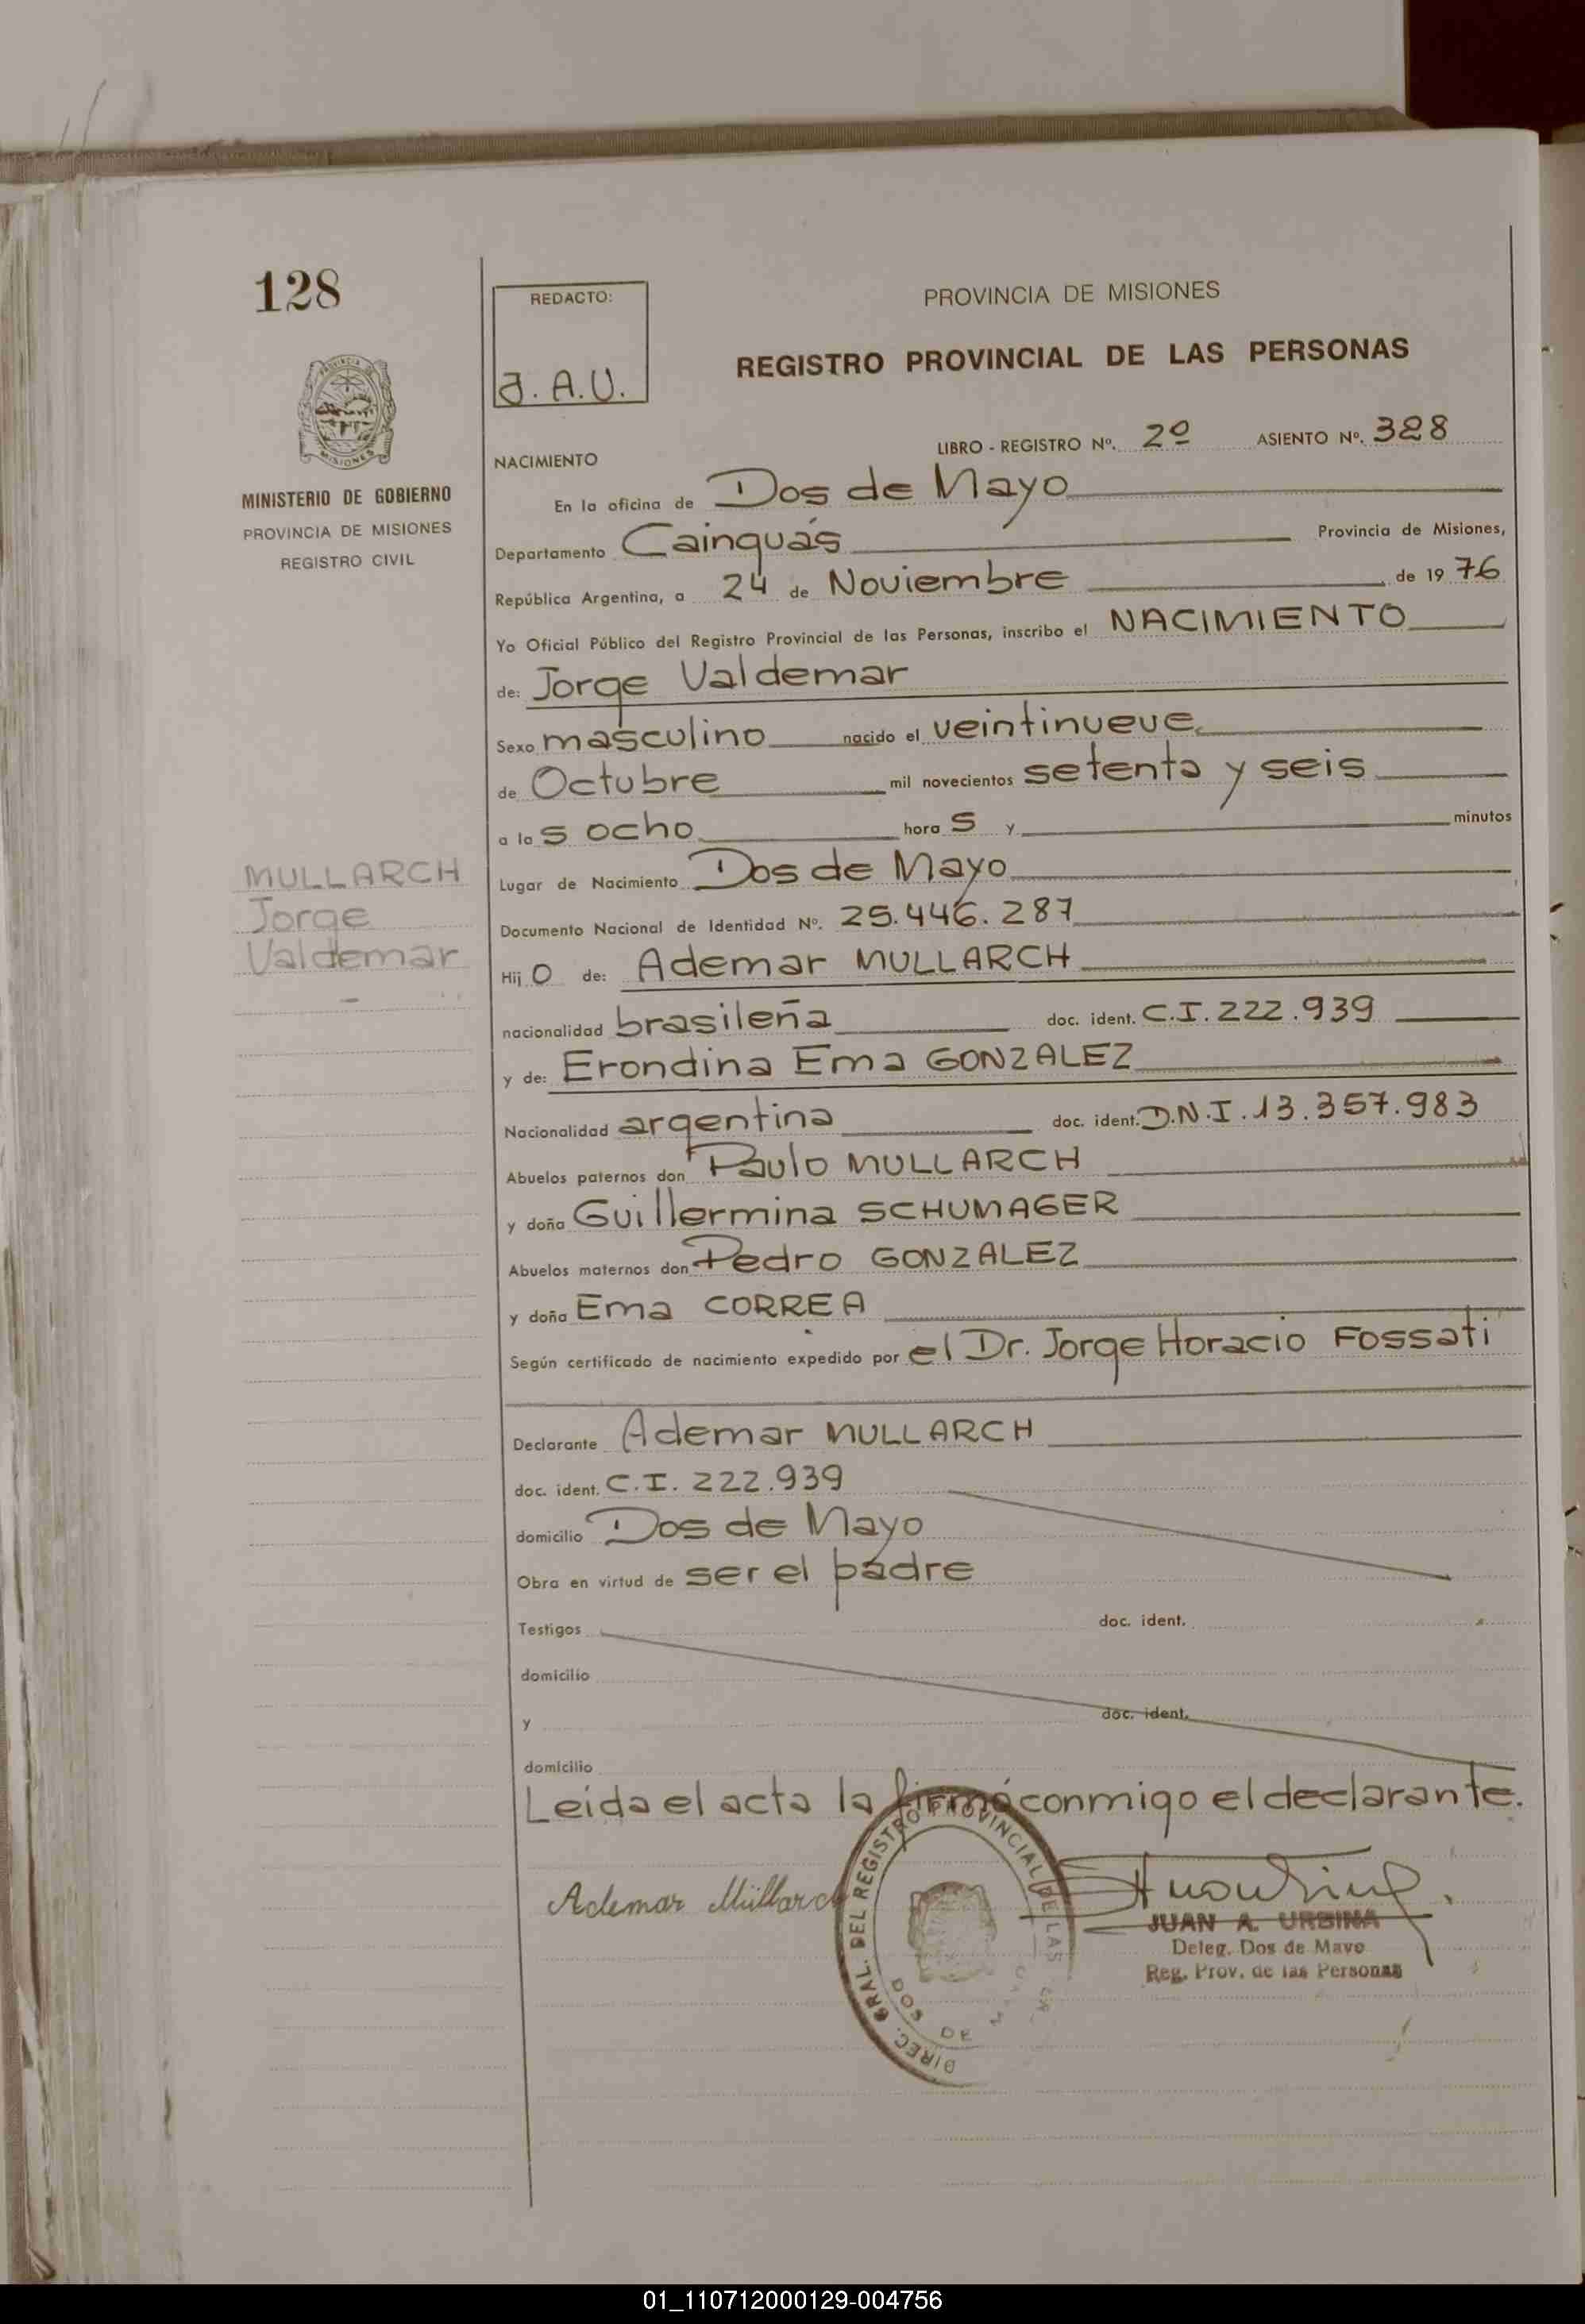 128
REDACTO:
J. A. U.
PROVINCIA DE MISIONES
REGISTRO PROVINCIAL DE LAS PERSONAS
MINISTERIO DE GOBIERNO
PROVINCIA DE MISIONES
REGISTRO CIVIL
LIBRO - REGISTRO Nº. 2º ASIENTO Nº. 328
NACIMIENTO
En la oficina de Dos de Mayo
Departamento Cainguás Provincia de Misiones,
República Argentina, a 24 de Noviembre de 19 76
Yo Oficial Público del Registro Provincial de las Personas, inscribo el NACIMIENTO
de: Jorge Valdemar
Sexo masculino nacido el veintinueve
de Octubre mil novecientos setenta y seis
a las ocho horas y minutos
MULLARCH
Jorge
Valdemar
Lugar de Nacimiento Dos de Mayo
Documento Nacional de Identidad Nº. 25.446.287
Hij o de: Ademar MULLARCH
nacionalidad brasileña doc. ident. C.I. 222.939
y de: Erondina Ema GONZALEZ
Nacionalidad argentina doc. ident. D.N.I. 13.357.983
Abuelos paternos don Paulo MULLARCH
y doña Guillermina SCHUMAGER
Abuelos maternos don Pedro GONZALEZ
y doña Ema CORREA
Según certificado de nacimiento expedido por el Dr. Jorge Horacio Fossati
Declarante Ademar MULLARCH
doc. ident. C.I. 222.939
domicilio Dos de Mayo
Obra en virtud de ser el padre
Testigos doc. ident.
domicilio
y doc. ident.
domicilio
Leída el acta la firmó conmigo el declarante.
Ademar Müllarch
DIREC. GRAL. DEL REGISTRO PROVINCIAL DE LAS
DOS DE
JUAN A. URBINA
Deleg. Dos de Mayo
Reg. Prov. de las Personas
01_110712000129-004756